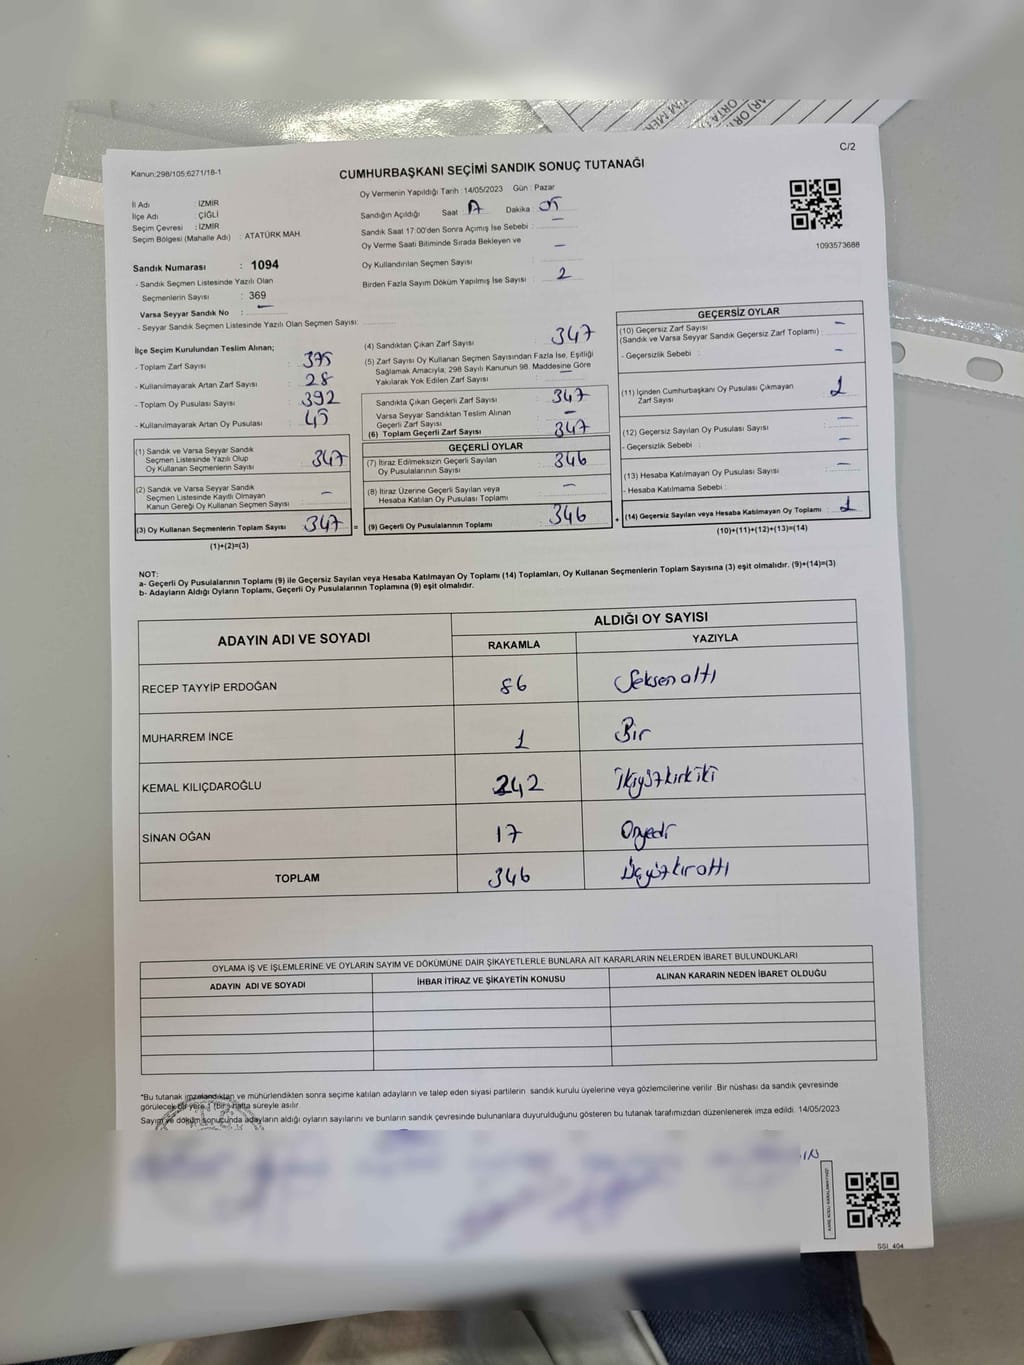 C/2
Kanun:298/105;6271/18-1
CUMHURBAŞKANI SEÇİMİ SANDIK SONUÇ TUTANAĞI
İl Adı : İZMİR
İlçe Adı : ÇİĞLİ
Seçim Çevresi : İZMİR
Seçim Bölgesi (Mahalle Adı) : ATATÜRK MAH.
Oy Vermenin Yapıldığı Tarih : 14/05/2023 Gün : Pazar
Sandığın Açıldığı Saat : Dakika : 05
Sandık Saat 17:00'den Sonra Açımış İse Sebebi : –
Oy Verme Saati Bitiminde Sırada Bekleyen ve
Oy Kullandırılan Seçmen Sayısı : –
Birden Fazla Sayım Döküm Yapılmış İse Sayısı : 2
1093573688
Sandık Numarası : 1094
- Sandık Seçmen Listesinde Yazılı Olan
Seçmenlerin Sayısı : 369
Varsa Seyyar Sandık No : –
- Seyyar Sandık Seçmen Listesinde Yazılı Olan Seçmen Sayısı:
İlçe Seçim Kurulundan Teslim Alınan;
- Toplam Zarf Sayısı : 375
- Kullanılmayarak Artan Zarf Sayısı : 28
- Toplam Oy Pusulası Sayısı : 392
- Kullanılmayarak Artan Oy Pusulası : 45
(1) Sandık ve Varsa Seyyar Sandık
Seçmen Listesinde Yazılı Olup
Oy Kullanan Seçmenlerin Sayısı : 347
(2) Sandık ve Varsa Seyyar Sandık
Seçmen Listesinde Kayıtlı Olmayan
Kanun Gereği Oy Kullanan Seçmen Sayısı : –
(3) Oy Kullanan Seçmenlerin Toplam Sayısı : 347 =
(1)+(2)=(3)
(4) Sandıktan Çıkan Zarf Sayısı : 347
(5) Zarf Sayısı Oy Kullanan Seçmen Sayısından Fazla İse, Eşitliği
Sağlamak Amacıyla; 298 Sayılı Kanunun 98. Maddesine Göre
Yakılarak Yok Edilen Zarf Sayısı : –
Sandıkta Çıkan Geçerli Zarf Sayısı : 347
Varsa Seyyar Sandıktan Teslim Alınan
Geçerli Zarf Sayısı : –
(6) Toplam Geçerli Zarf Sayısı : 347
GEÇERLİ OYLAR
(7) İtiraz Edilmeksizin Geçerli Sayılan
Oy Pusulalarının Sayısı : 346
(8) İtiraz Üzerine Geçerli Sayılan veya
Hesaba Katılan Oy Pusulası Toplamı : –
(9) Geçerli Oy Pusulalarının Toplamı : 346 +
GEÇERSİZ OYLAR
(10) Geçersiz Zarf Sayısı
(Sandık ve Varsa Seyyar Sandık Geçersiz Zarf Toplamı) : –
- Geçersizlik Sebebi : –
(11) İçinden Cumhurbaşkanı Oy Pusulası Çıkmayan
Zarf Sayısı : 1
(12) Geçersiz Sayılan Oy Pusulası Sayısı : –
- Geçersizlik Sebebi : –
(13) Hesaba Katılmayan Oy Pusulası Sayısı : –
- Hesaba Katılmama Sebebi :
(14) Geçersiz Sayılan veya Hesaba Katılmayan Oy Toplamı : 1
(10)+(11)+(12)+(13)=(14)
NOT:
a- Geçerli Oy Pusulalarının Toplamı (9) ile Geçersiz Sayılan veya Hesaba Katılmayan Oy Toplamı (14) Toplamları, Oy Kullanan Seçmenlerin Toplam Sayısına (3) eşit olmalıdır. (9)+(14)=(3)
b- Adayların Aldığı Oyların Toplamı, Geçerli Oy Pusulalarının Toplamına (9) eşit olmalıdır.
ADAYIN ADI VE SOYADI
ALDIĞI OY SAYISI
RAKAMLA YAZIYLA
RECEP TAYYİP ERDOĞAN 86 Seksenaltı
MUHARREM İNCE 1 Bir
KEMAL KILIÇDAROĞLU 242 İkiyüzkırkiki
SİNAN OĞAN 17 Onyedi
TOPLAM 346 Üçyüzkıraltı
OYLAMA İŞ VE İŞLEMLERİNE VE OYLARIN SAYIM VE DÖKÜMÜNE DAİR ŞİKAYETLERLE BUNLARA AİT KARARLARIN NELERDEN İBARET BULUNDUKLARI
ADAYIN ADI VE SOYADI İHBAR İTİRAZ VE ŞİKAYETİN KONUSU ALINAN KARARIN NEDEN İBARET OLDUĞU
*Bu tutanak imzalandıktan ve mühürlendikten sonra seçime katılan adayların ve talep eden siyasi partilerin sandık kurulu üyelerine veya gözlemcilerine verilir .Bir nüshası da sandık çevresinde
görülecek bir yere 1 (bir) hafta süreyle asılır
Sayım ve döküm sonucunda adayların aldığı oyların sayılarını ve bunların sandık çevresinde bulunanlara duyurulduğunu gösteren bu tutanak tarafımızdan düzenlenerek imza edildi. 14/05/2023
SSI_404